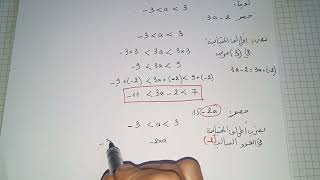 -3 < a < 3
حصر 3a - 2 :
-3 < a < 3
نضرب أطراف المتباينة
في (3) موجب
-3×3 < 3a < 3×3
-9 < 3a < 9
3a-2 = 3a+(-2)
-9+(-2) < 3a+(-2) < 9+(-2)
-11 < 3a-2 < 7
حصر :
-2a
-3 < a < 3
نضرب أطراف المتباينة
في العدد السالب (-2)
-2×a